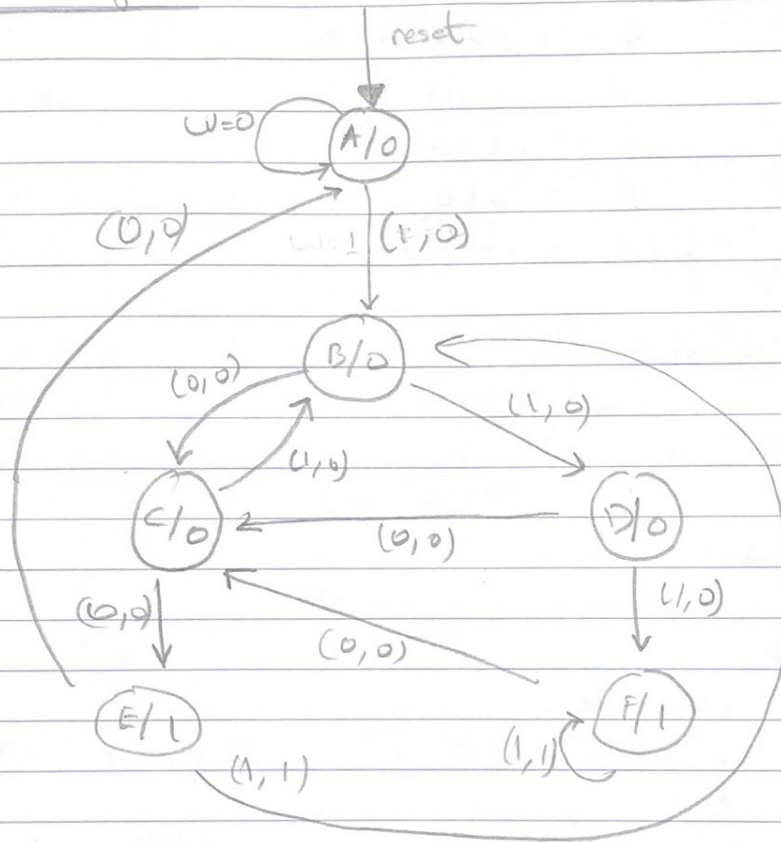 reset
w=0
A/0
(0,0)
w=1 (1,0)
B/0
(0,0)
(1,0)
(1,0)
C/0
D/0
(0,0)
(0,0)
(1,0)
(0,0)
E/1
F/1
(1,1)
(1,1)